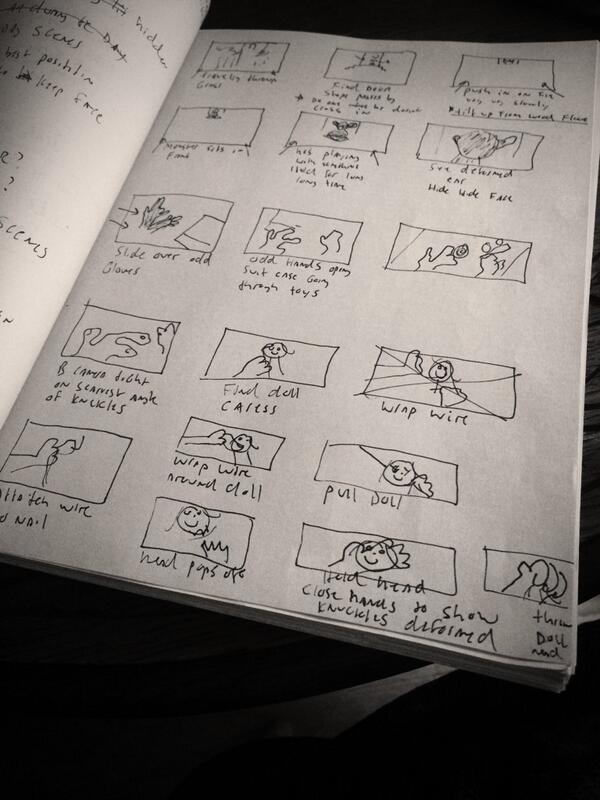 hidden
During the Day
SCENES
best position
Keep Face
?
?
SCENES
through
Grass
Find Door
Shape passes by
Do one
Cross in
push in on Fire
very very slowly
tilt up from wood Floor
Monster sits in
Front
hes playing
with something
Hold for long
long time
See deformed
ear
Hide Hide Face
Slide over odd
Gloves
odd hands open
suit case Going
through toys
B camera tight
on scariest angle
of knuckles
Find doll
Caress
wrap wire
Attatch wire
nail
wrap wire
around doll
pull Doll
head pops off
Hold head
Close hands to show
knuckles deformed
throw
Doll
head